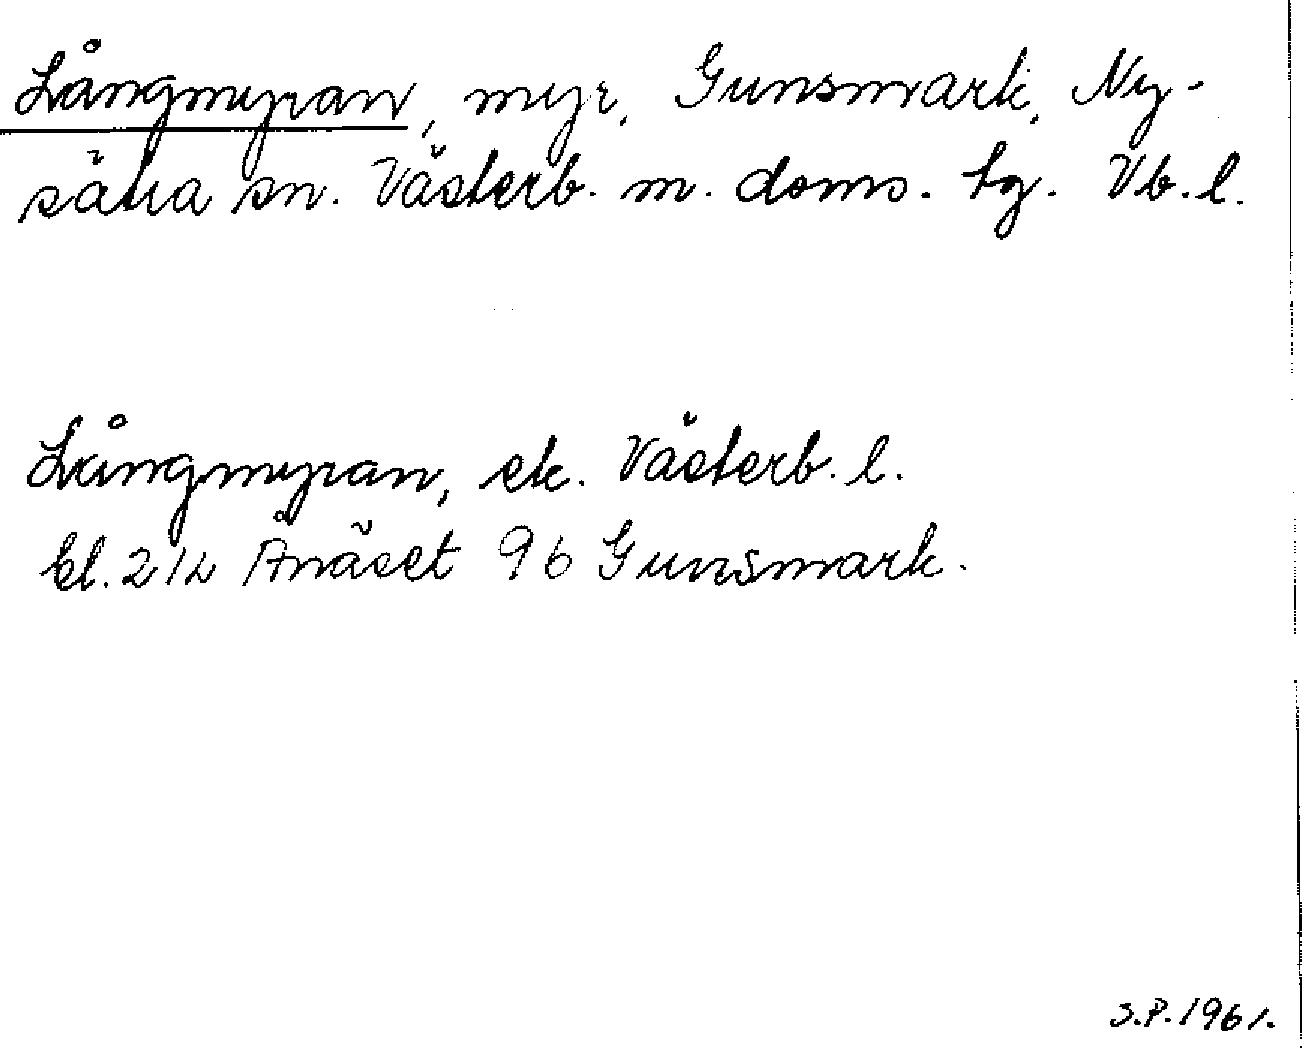 Långmyran, myr, Gunsmark, Ny-
sätra sn. Västerb. m. doms. tg. Vb. l.
Långmyran, ek. Västerb. l.
bl. 212 Ånäset 96 Gunsmark.
S.P. 1961.